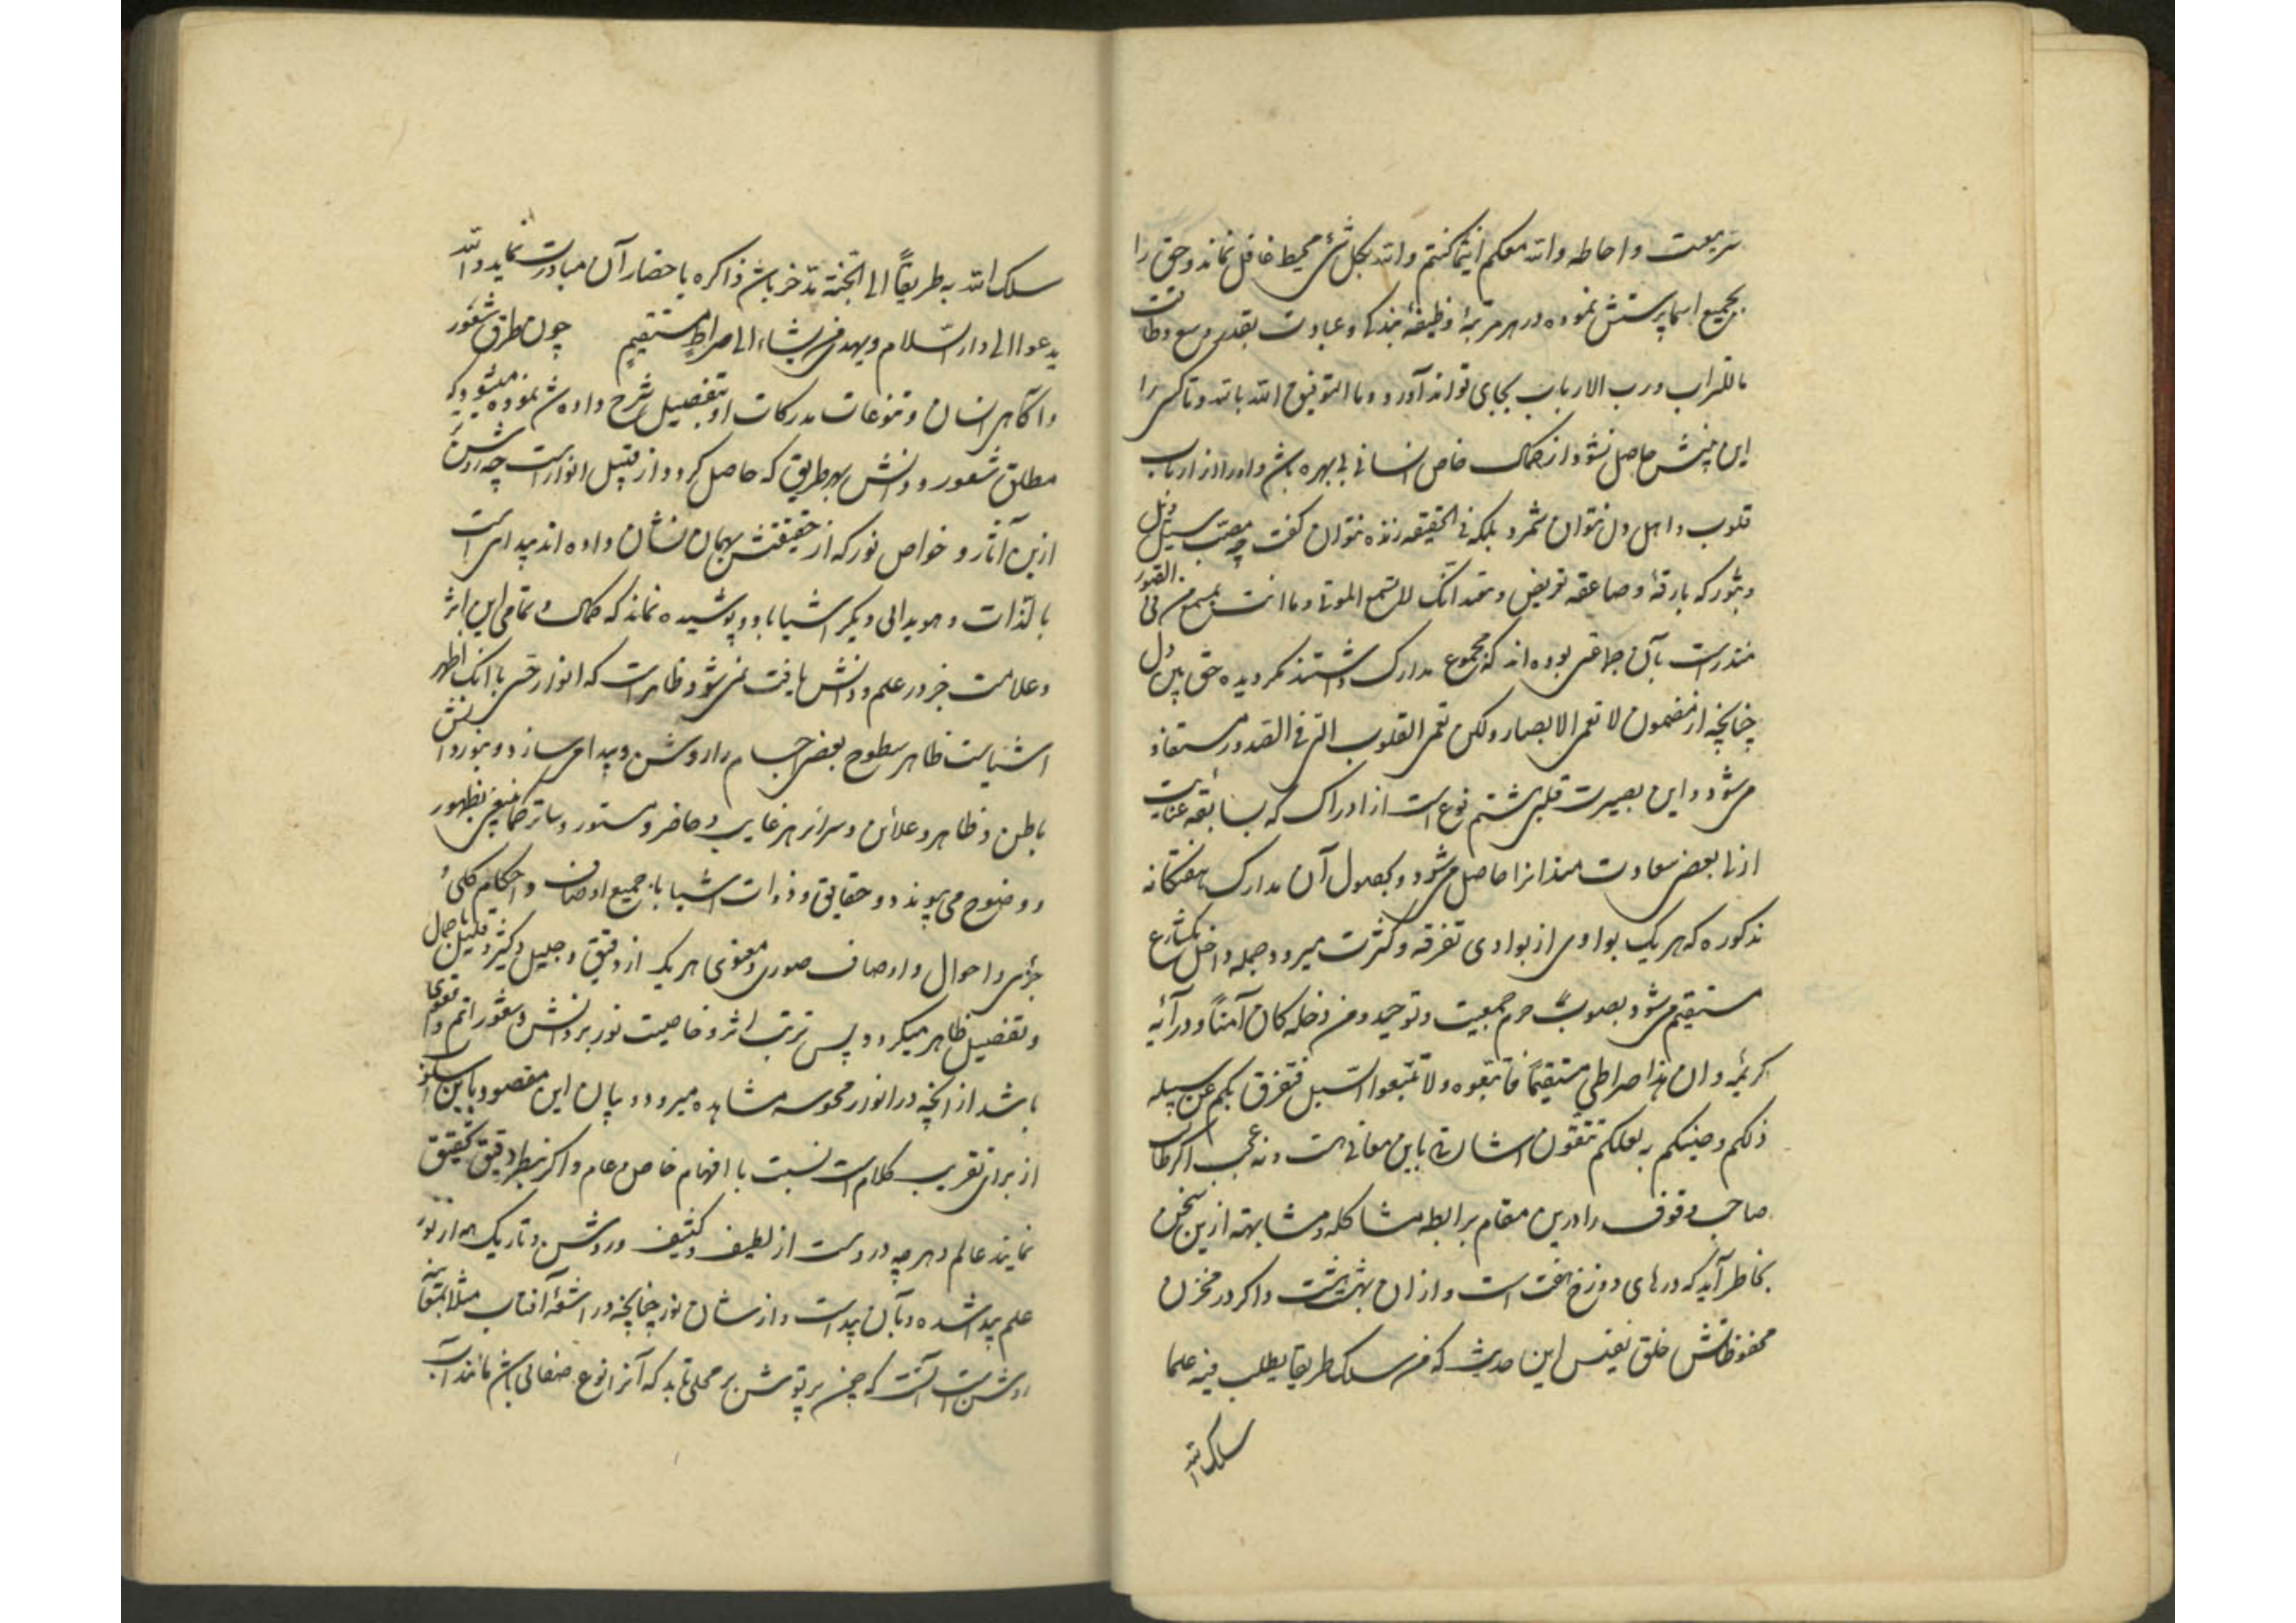 سر معیت و احاطه والله معکم اینما کنتم والله بکل شیء محیط غافل نماند و حق را
بجمیع اسما پرستش نموده در هر مرتبهٔ وظیفهٔ بندگی و عبادت بقدر وسع و طاقت
ماللتراب و رب الارباب بجای تواند آورد و ما التوفیق الا بالله و تا کسی را
این بینش حاصل نشود از کمال خاص انسانی بی بهره باشد و او را از ارباب
قلوب و اهل دل نتوان شمرد بلکه فی الحقیقه زنده نتوان گفت چه مصب سیل ویل
و ثبور که بارقهٔ و صاعقه تعریض و تهدید انک لا تسمع الموتی و ما انت بمسمع من فی القبور
منذرست بآن جماعتی بوده اند که مجموع مدارک داشتند مگر دیده حق بین دل
چنانچه از مضمون لا تعمی الابصار ولکن تعمی القلوب التی فی الصدور مستفاد
می‌شود و این بصیرت قلبی هشتم نوع است از ادراک که بسابقه عنایت
ازلی بعضی سعادت مندانرا حاصل می‌شود و بحصول آن مدارک هفتگانه
مذکوره که هر یک بوادی از بوادی تفرقه و کثرت میرود جمله داخل شارع
مستقیم می‌شود بصوب حرم جمعیت و توحید و من دخله کان آمناً و در آیه
کریمه و ان هذا صراطی مستقیماً فاتبعوه و لا تتبعوا السبل فتفرق بکم عن سبیله
ذلکم وصیکم به لعلکم تتقون اشارتی باین معانی هست و نه عجب اگر طالب
صاحب وقوف را درین مقام برابطه مشاکله و مشابهته ازین سخن
بخاطر آید که درهای دوزخ هفت است و از آن بهشت هشت و اگر در مخزن
محفوظاتش علق نفیس این حدیث که من سلک طریقا یطلب فیه علما
سلک الله
سلک الله به طریقاً الی الجنة مدخر باشد ذاکره باحضار آن مبادرت نماید والله
یدعو الی دار السلام و یهدی من یشاء الی صراط مستقیم چون طرق شعور
و آگاهی انسان و تنوعات مدرکات او بتفصیل شرح داده شد نموده میشود که
مطلق شعور و دانش بهر طریق که حاصل گردد از قبیل انوارست چه روشن
ازین آثار و خواص نور که از حقیقتش بهمان نشان داده اند پیدایی است
بالذات و هویدایی دیگر اشیا باو و پوشیده نماند که کمال و تمامی این اثر
و علامت جز در علم و دانش یافت نمی‌شود و ظاهرست که انوار حسی با آنک اظهر
اشیاست ظاهر سطوح بعضی اجسام را روشن و پیدا می‌سازد و بنور دانش
باطن و ظاهر و علائن و سرائر هر غایب و حاضر و مستور و سائر کما ینبغی بظهور
و وضوح می پیوندد و حقایق و ذوات اشیا با جمیع اوصاف و احکام کلی
جزئی و احوال و اوصاف صوری و معنوی هر یک از دقیق و جلیل و کثیر و قلیل باجمال
و تفصیل ظاهر میگردد پس ترتب اثر و خاصیت نور بر دانش و شعور اتم و اقوی
باشد از آنچه در انوار محسوسه مشاهده میرود و بیان این مقصود باین اسلوب
از برای تقریب کلام است نسبت با افهام خاص و عام و اگر بنظر دقیق تحقیق
نمایند عالم و هر چه در دست از لطیف و کثیف و روشن و تاریک همه از نور
علم پیدا شده و بآن پیداست و از شان نور چنانچه در اشعهٔ آفتاب مثلا بمعاینه
روشن است آنست که چون پرتوش بر محلی تابد که آنرا نوع صفائی باشد مانند آب